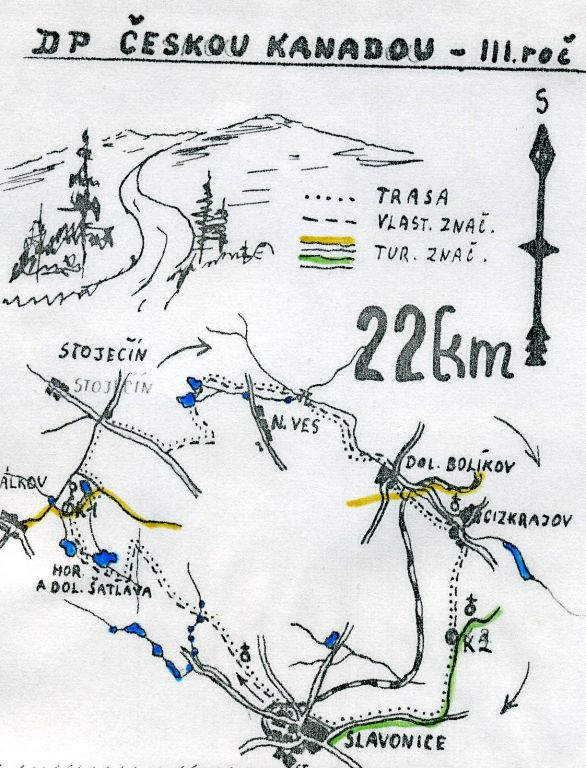 DP ČESKOU KANADOU - III.roč
S
TRASA
VLAST. ZNAČ.
TUR. ZNAČ.
22km
STOJEČÍN
STOJEČÍN
N. VES
DOL. BOLÍKOV
CIZKRAJOV
ÁLKOV
K1
HOR.
A DOL. ŠATLAVA
K2
SLAVONICE